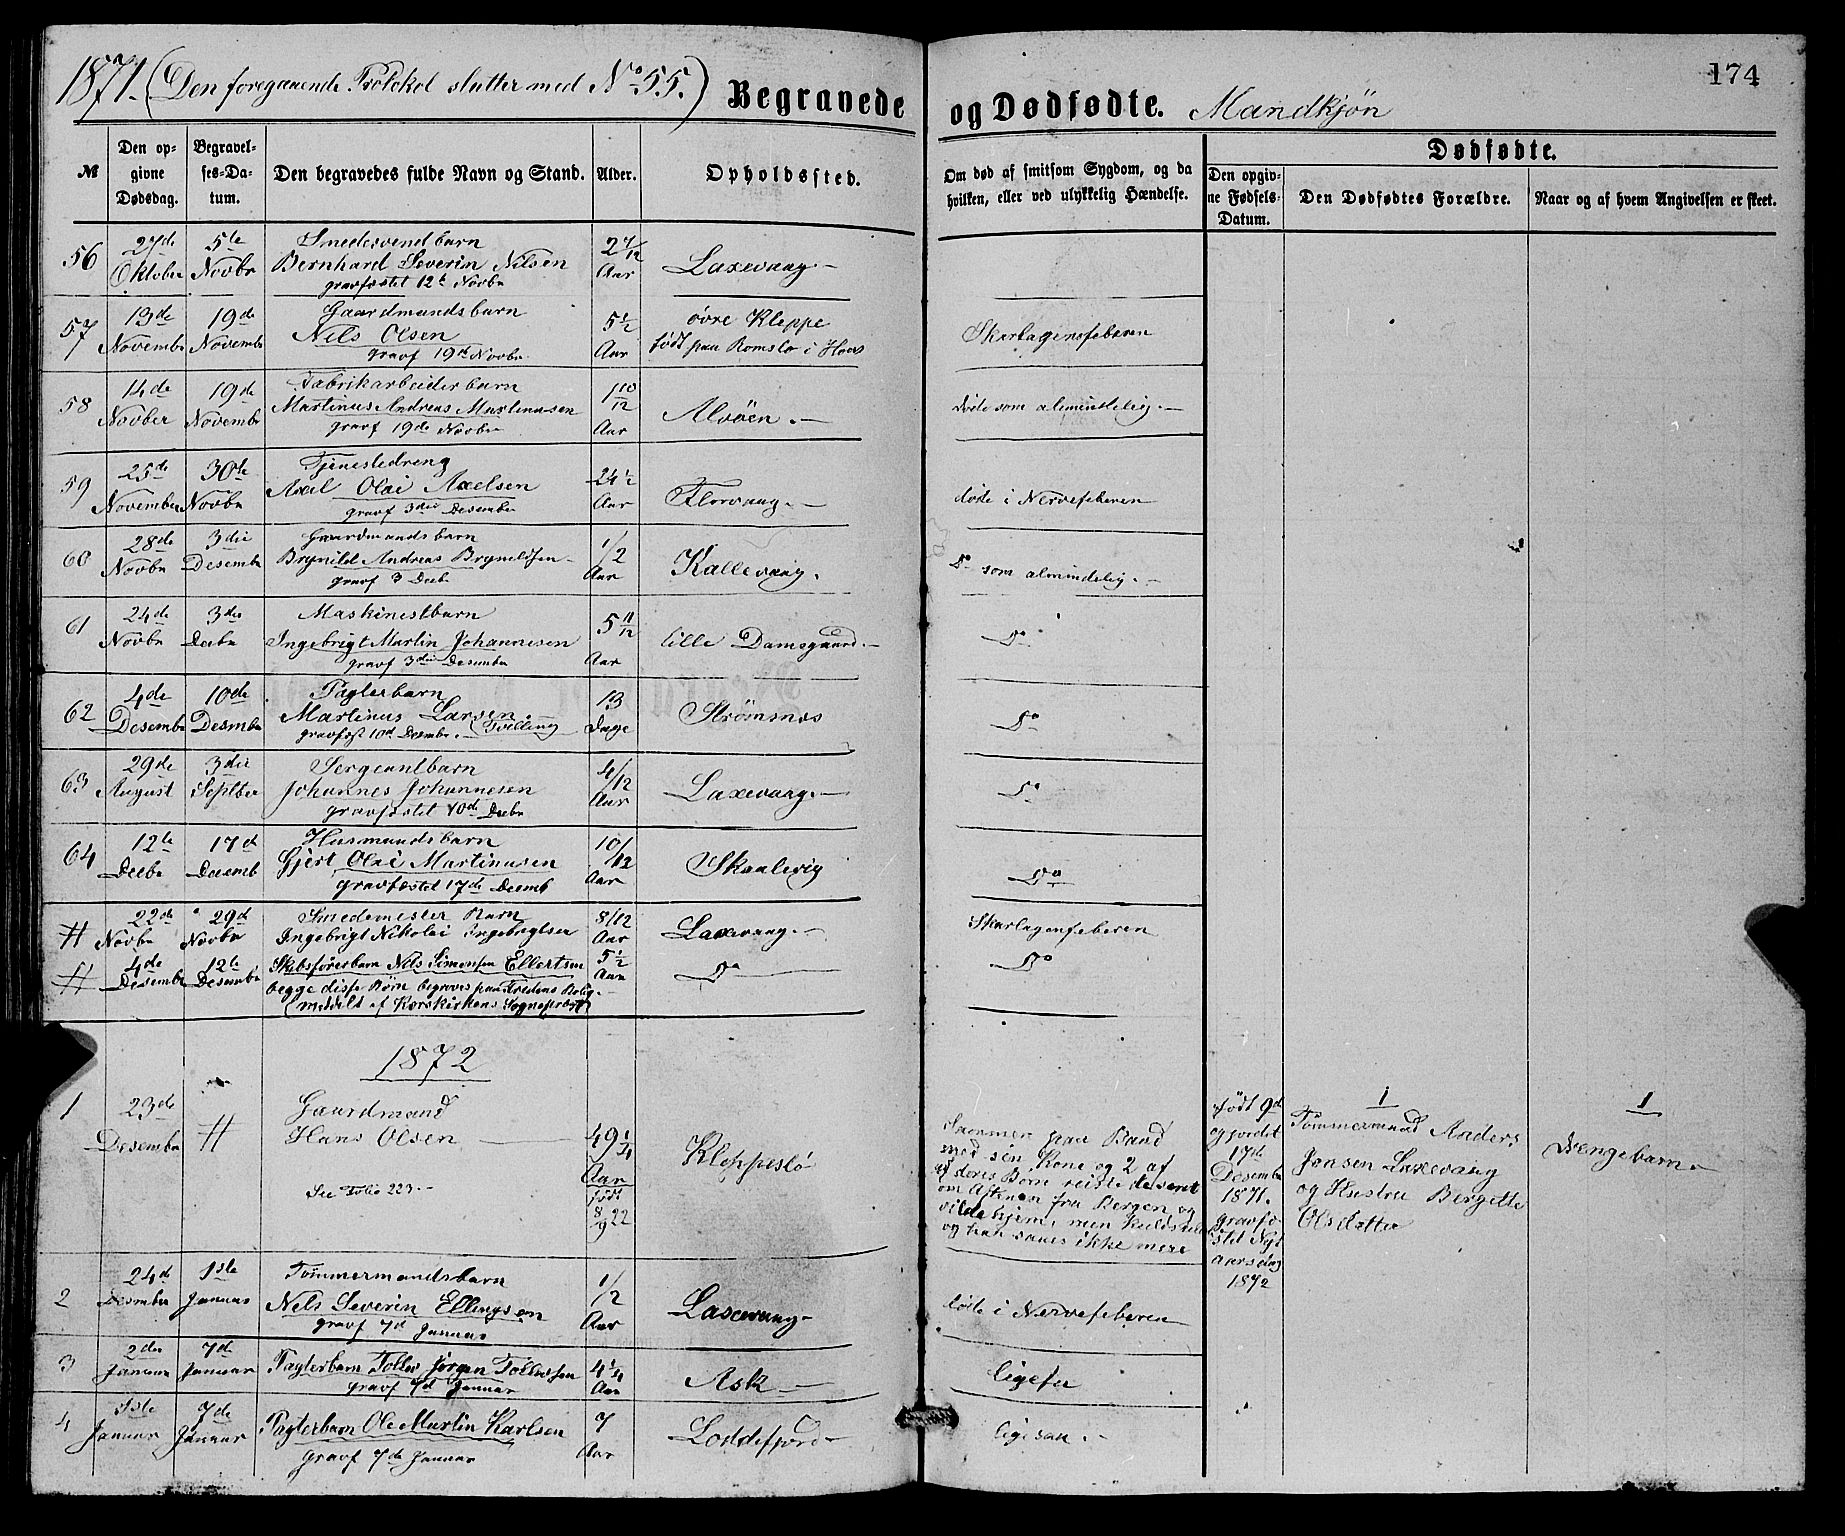 1871. (Den foregaaende Protokol slutter med No 55.) Begravede og Dødfødte. Mandkjøn
174
№ | Den opgivne Dødsdag. | Begravelses-Datum. | Den begravedes fulde Navn og Stand. | Alder. | Opholdssted. | Om død af smitsom Sygdom, og da hvilken, eller ved ulykkelig Hændelse. | Dødfødte. | Den opgivne Fødsels-Datum. | Den Dødfødtes Forældre. | Naar og af hvem Angivelsen er skeet.
56 | 27de Oktober | 5te Novbr | Smedesvendbarn
Bernhard Severin Nilsen
gravfæstet 12te Novbr | 2 7/12 Aar | Laxevaag
57 | 13de Novembr | 19de Novembr | Gaardmandsbarn
Nils Olsen
gravf 19de Novbr | 5 1/2 Aar | øvre Kleppe
født paa Romslo i Hoars | Skarlagensfeberen
58 | 14de Novber | 19de Novembr | Fabrikarbeiderbarn
Martinus Andreas Martinusen
gravf 19de Novbr | 1 10/12 Aar | Alvøen | døde som almindelig
59 | 25de November | 30te Novbr | Tjenestedreng
Axel Olai Axelsen
gravf 3die Desember | 24 1/2 Aar | Florvaag | døde i Nervefeberen
60 | 28de Novbr | 3die Desembr | Gaardmandsbarn
Brynild Andreas Bryneldsen
gravf 3 Decbr | 1/2 Aar | Kallevaag. | Do som almindelig
61 | 24de Novbr | 3die Decbr | Maskinestbarn
Ingebrigt Martin Johannesen
gravf 3die Desember | 5 11/12 Aar | lille Damsgaard | Do
62 | 4de Desembr | 10de Desmbr | Pagterbarn
Martinus Larsen (Tvilling
gravfæst 10d Desmbr. | 13 Dage | Strømsnes | Do
63 | 29de August | 3die Septber | Sergeantbarn
Johannes Johannesen
gravfæstet 10de Decbr | 4/12 Aar | Laxevaag | Do
64 | 12te Decbr | 17d Decemb | Husmandsbarn
Gjert Olai Martinusen
gravfæstet 17de Decmb | 10/12 Aar | Skaalevig | Do
# | 22de Novbr | 29d Novbr | Smedemester Barn
Ingebrigt Nikolai Ingebrigtsen | 8/12 Aar | Laxevaag | Skarlagensfeberen
# | 4de Desembr | 12te Desembr | Skibsførerbarn Nils Simonsen Ellertsen | 5 1/2 Aar | Do | Do
begge disse Børn begroves paa Fredens Bolig
(meddelt af Korskirkens Sogneprest)
1872
1 | 23de Desembr | # | Gaardmand
Hans Olsen
See Folio 223 | 49 1/4 Aar født 8/9 22 | Kleppestø | Sammen paa Baad
med sin Kone og 2 af
deres Børn reiste de sent
om Aftenen fra Bergen og
vilde hjem, men
og han saaes ikke mere | født 9d
og jordet
17de
Desembr
1871.
gravfæ-
stet Nyt
aarsdag
1872 | 1
Tømmermand Anders
Jonsen Laxevaag
og Hustru Bergette
Olsdatter | 1
Drengebarn
2 | 24de Desember | 1ste Januar | Tømmermandsbarn
Nels Severin Ellingsen
gravf 7d Januar | 1/2 Aar | Laxevaag | døde i Nervefeberen
3 | 2den Januar | 7d Januar | Pagterbarn Tollev Jørgen Tollevsen
gravf 7d Januar | 4 1/4 Aar | Ask | ligefor
4 | 1ste Januar | 7de Januar | Pagterbarn Ole Martin Karlsen
gravf 7de Januar | 7 Aar | Loddefjord | ligesaa